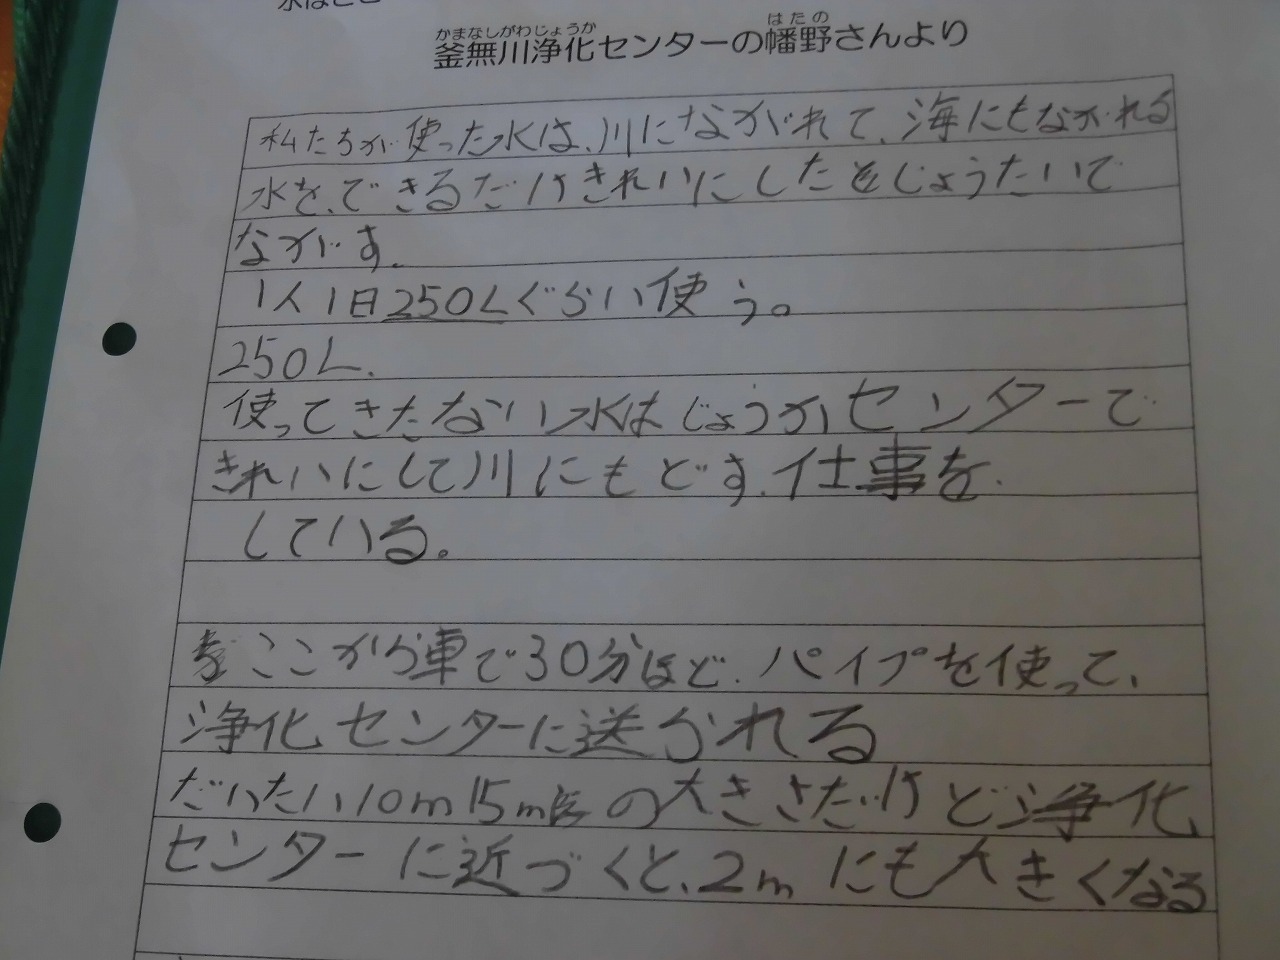 かまなしがわじょうか はたの
釜無川浄化センターの幡野さんより
私たちが使った水は、川にながれて、海にもながれる
水を、できるだけきれいにしたをじょうたいで
ながす。
1人1日250Lぐらい使う。
250L.
使ってきたない水はじょうかセンターで
きれいにして川にもどす、仕事を
している。
ここから車で30分ほど、パイプを使って、
浄化センターに送られる
だいたい10m15mの大きさだけど浄化
センターに近づくと、2mにも大きくなる